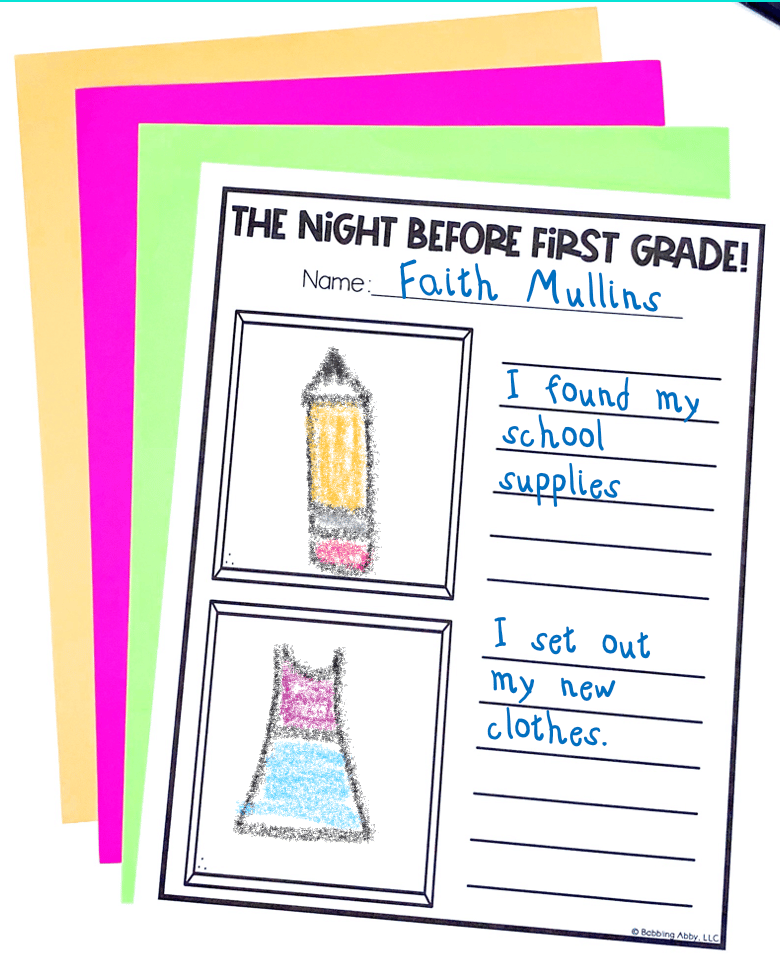 THE NiGHT BEFORE FiRST GRADE!
Name: Faith Mullins
I found my
school
supplies
I set out
my new
clothes.
© Bobbing Abby, LLC